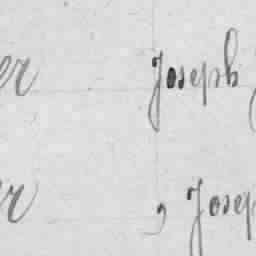 er Joseph
er , Josep